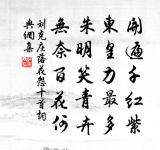 開遍千紅紫
東皇力最多
朱明笑青卉
無奈百花何
刘克庄落花怨十首詞
典網集